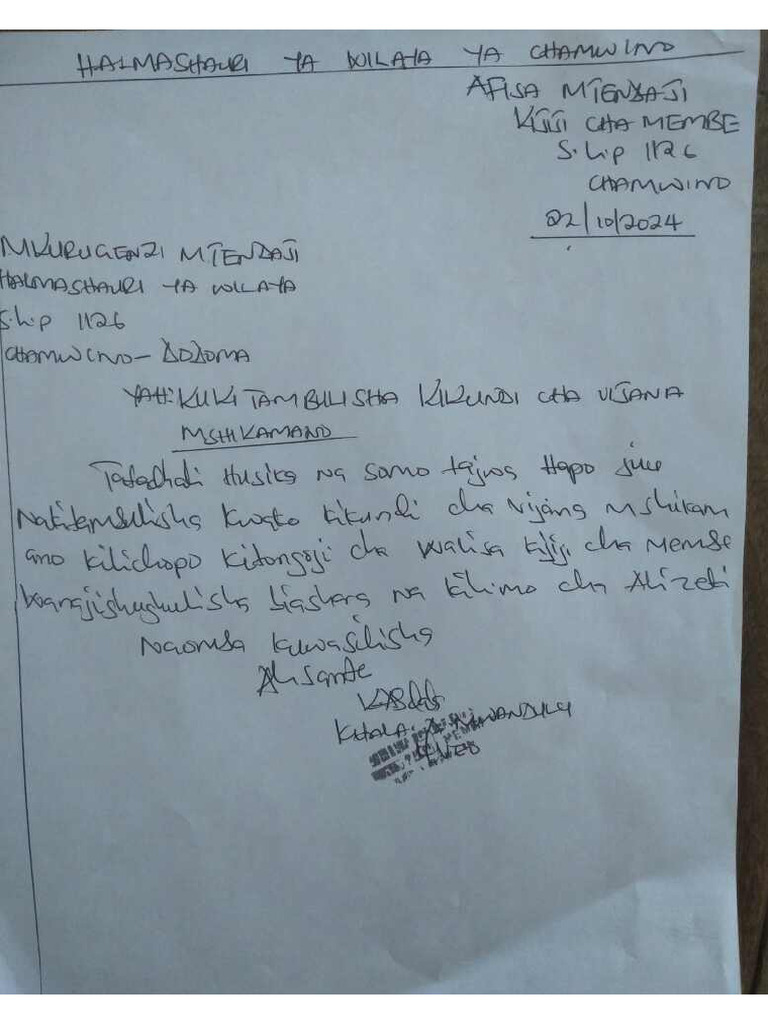 HALMASHAURI YA WILAYA YA CHAMWINO
AFISA MTENDAJI
KIJIJI CHA MEMBE
S.L.P 1126
CHAMWINO
02/10/2024
MKURUGENZI MTENDAJI
HALMASHAURI YA WILAYA
S.L.P 1126
CHAMWINO - DODOMA
YAH: KUKITAMBULISHA KIKUNDI CHA VIJANA
MSHIKAMANO
Tafadhali Husika na somo tajwa Hapo juu
Nakitambulisha kwako kikundi cha vijana mshikam
ano kilichopo kitongoji cha Walisa kijiji cha Membe
wanajishughulisha biashara na kilimo cha Alizeti
Naomba kuwasilisha
Ahsante